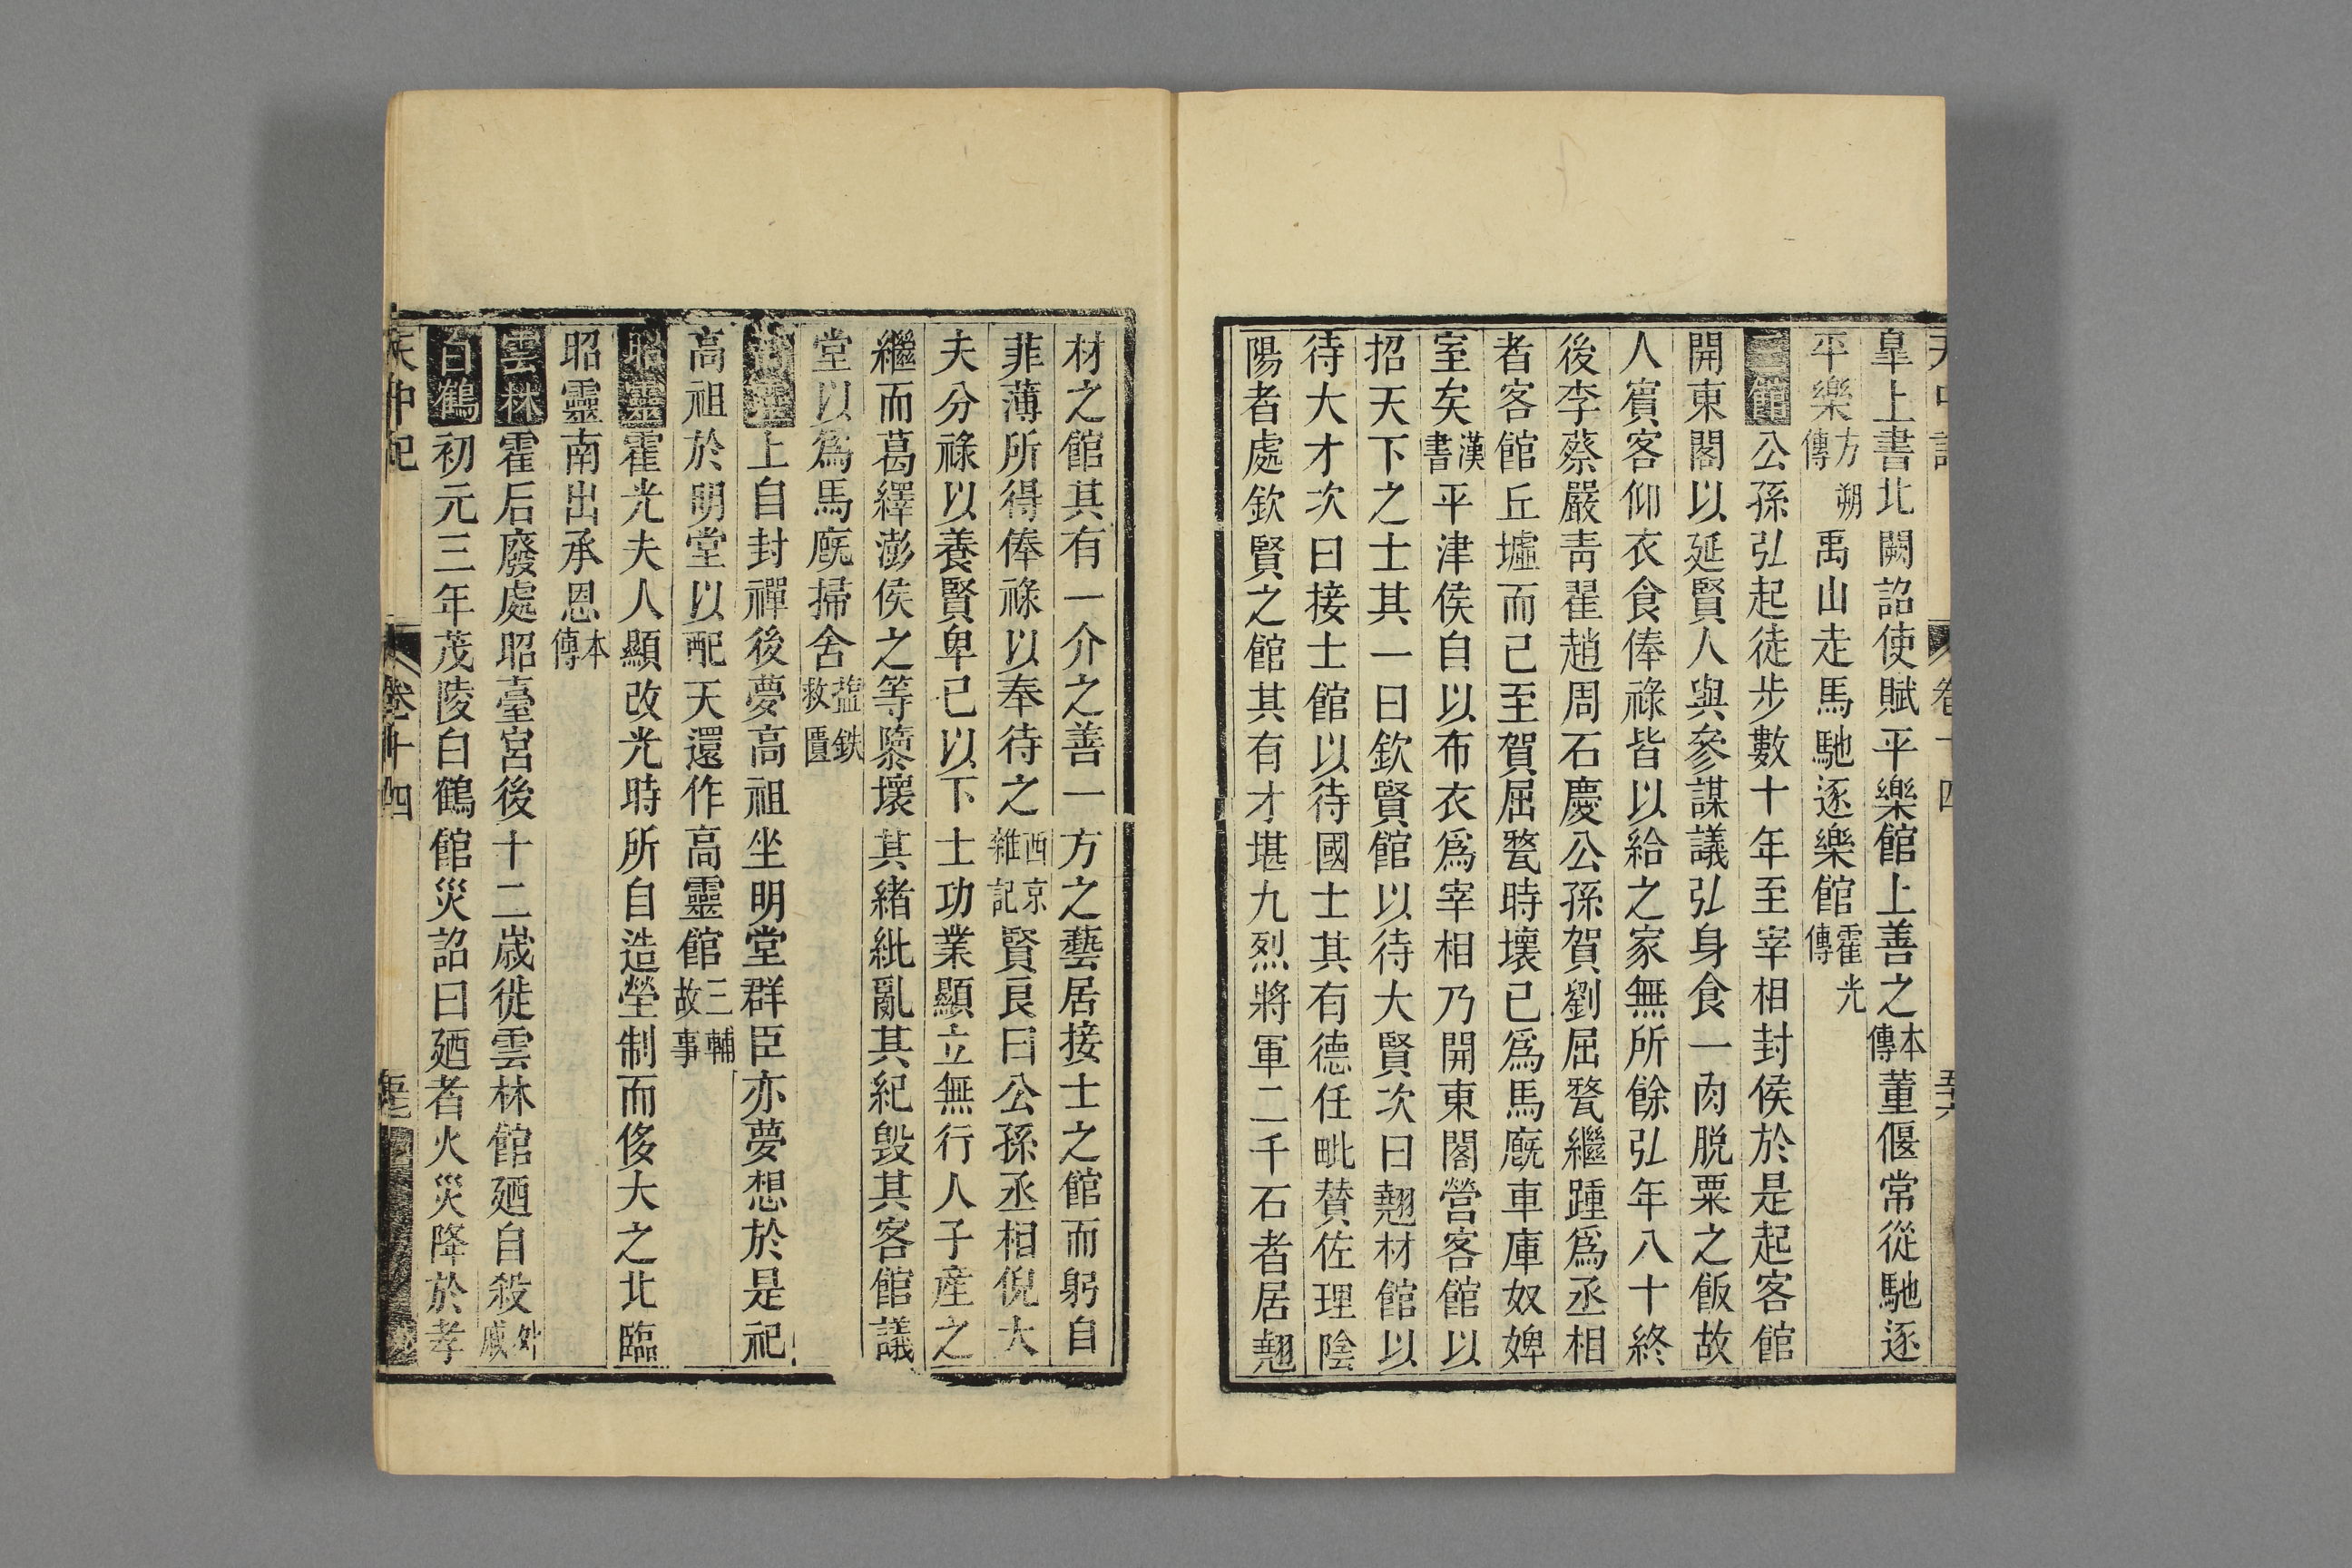 皐上書北闕詔使賦平樂館上善之本傳董偃常從馳逐
平樂方朔傳禹山走馬馳逐樂館霍光傳
三館公孫弘起徒步數十年至宰相封侯於是起客館
開東閣以延賢人與參謀議弘身食一肉脱粟之飯故
人賓客仰衣食俸祿皆以給之家無所餘弘年八十終
後李蔡嚴靑翟趙周石慶公孫賀劉屈氂繼踵爲丞相
者客館丘墟而已至賀屈氂時壞已爲馬廐車庫奴婢
室矣漢書平津侯自以布衣爲宰相乃開東閣營客館以
招天下之士其一曰欽賢館以待大賢次曰翹材館以
待大才次曰接士館以待國士其有德任毗贊佐理陰
陽者處欽賢之館其有才堪九烈將軍二千石者居翹
材之館其有一介之善一方之藝居接士之館而躬自
菲薄所得俸祿以奉待之西京雜記賢良曰公孫丞相倪大
夫分祿以養賢卑己以下士功業顯立無行人子產之
繼而葛繹澎侯之等隳壞其緒紕亂其紀毁其客館議
堂以爲馬廐掃舍鹽鉄救匱
高靈上自封禪後夢高祖坐明堂群臣亦夢想於是祀
高祖於明堂以配天還作高靈館三輔故事
昭靈霍光夫人顯改光時所自造塋制而侈大之北臨
昭靈南出承恩本傳
雲林霍后廢處昭臺宮後十二歲徙雲林館廼自殺外戚
白鶴初元三年茂陵白鶴館災詔曰廼者火災降於孝
卷十四